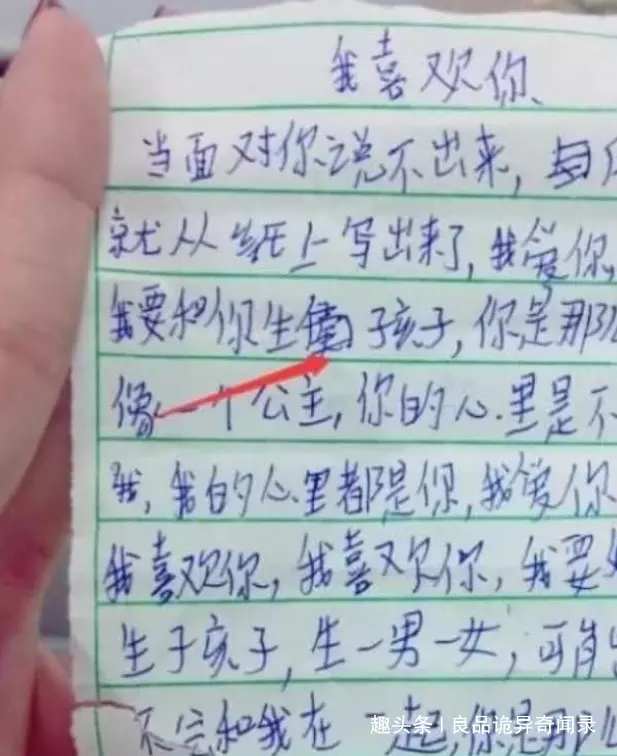 我喜欢你、
当面对你说不出来,每
就从纸上写出来了,我爱你,
我要和你生 子孩子,你是那
像一个公主,你的心.里是不
我,我的心.里都是你,我爱你
我喜欢你,我喜欢你,我要
生子孩子,生一男一女,可肯
不完和我在一起你是
趣头条 | 良品诡异奇闻录